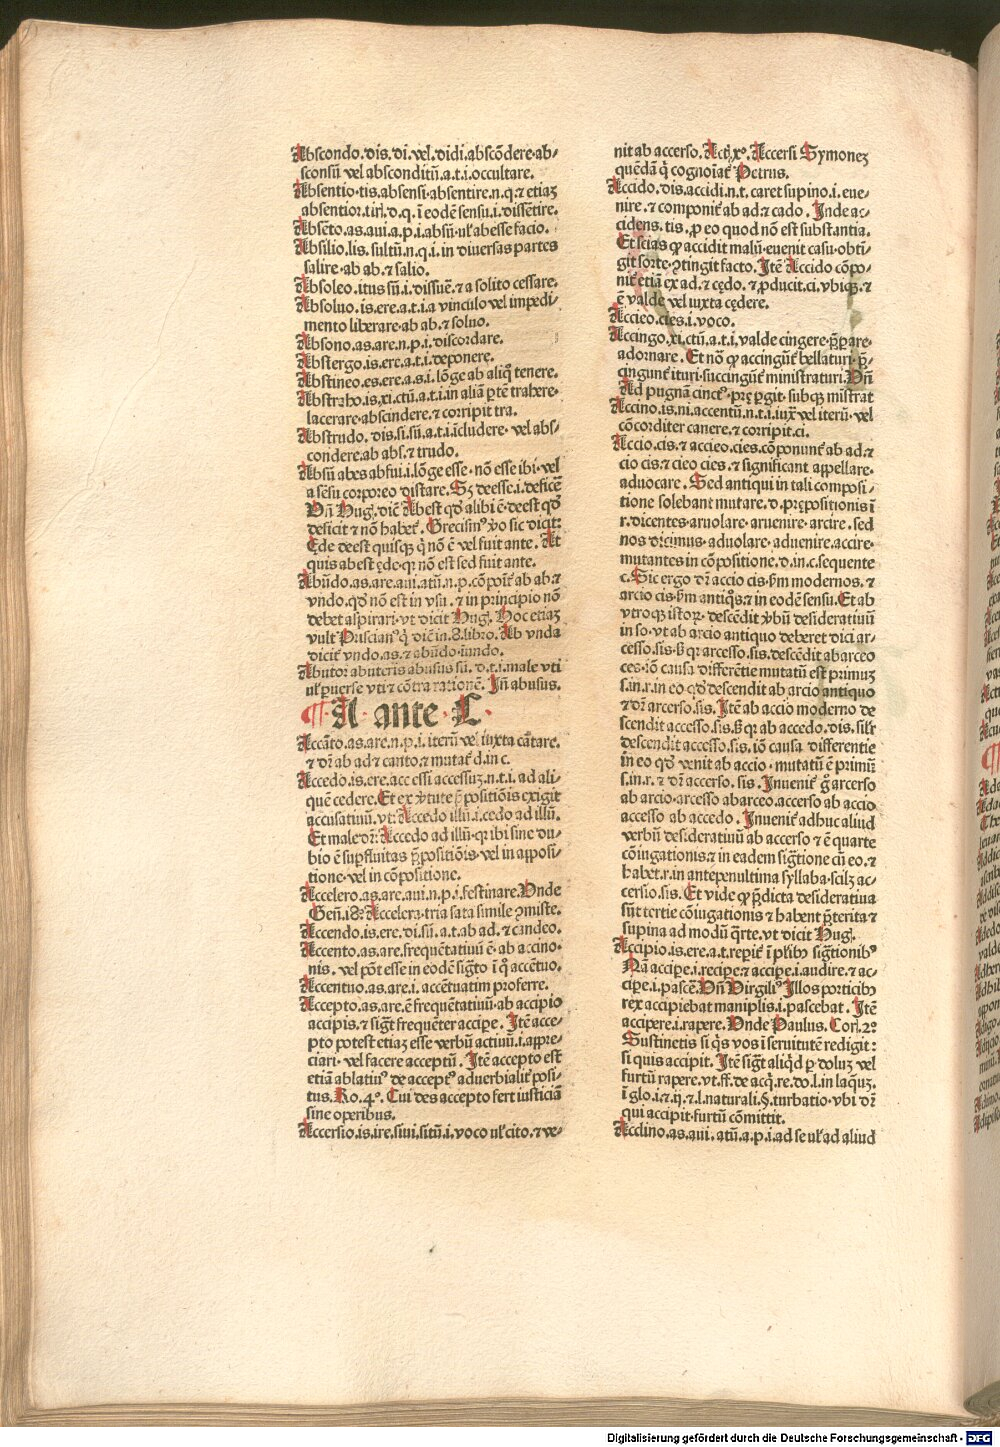 Abscondo.dis.di.vel.didi.abscōdere.ab⸗
sconsū vel absconditū.a.t.i.occultare.
Absentio.tis.absensi.absentire.n.q.⁊ etiaʒ
absentior.tiri.d.q.i eodē sensu.i.dissētire.
Absēto.as.aui.a.p.i absū.uł abesse facio.
Absilio.lis.sultū.n.q.i.in diuersas partes
salire.ab ab.⁊ salio.
Absoleo.itus sū.i.dissuē.⁊ a solito cessare.
Absoluo.is.ere.a.t.i.a vinculo vel impedi⸗
mento liberare.ab ab.⁊ soluo.
Absono.as.are.n.p.i.discordare.
Abstergo.is.ere.a.t.i.deponere.
Abstineo.es.ere.a.s.i.lōge ab aliq̄ tenere.
Abstraho.is.xi.ctū.a.t.i.in aliā ꝑtē trahere.
lacerare.abscindere.⁊ corripit tra.
Abstrudo.dis.si.sū.a.t.i.īcludere.vel abs⸗
condere.ab abs.⁊ trudo.
Absū abes abfui.i.lōge esse.nō esse ibi.vel
a sēsu corporeo distare.Sʒ deesse.i.deficē
Vn̄ Hug.dic̄ Abest qd̄ alibi ē.deest qd̄
deficit ⁊ nō habet̄.Grecismꝰ ꝟo sic dicit:
Ede deest quisqꝫ q̄ nō ē vel fuit ante.At
quis abest ęde.qꝛ non est sed fuit ante.
Abūdo.as.are.aui.atū.n.p.cōpoīt̄ ab ab.⁊
vndo.qd̄ nō est in vsu.⁊ in principio nō
debet aspirari.vt dicit Hug. Hoc etiaʒ
vult Priscianꝰ q̄ dic̄ in.8.libro.Ab vnda
dicit̄ vndo.as.⁊ abūdo.undo.
Abutor abuteris abusus sū.d.t.i.male vti
uł ꝑuerse vti ⁊ cōtra rationē.Jn̄ abusus.
¶ A ante C
Accāto.as.are.n.p.i.iterū vel iuxta cātare.
⁊ dr̄ ab ad ⁊ canto.⁊ mutat̄ d.in c.
Accedo.is.ere.accessi accessuʒ.n.t.i.ad ali⸗
quē cedere.Et ex ꝟtute p̄positiōis exigit
accusatiuū.vt: Accedo illū.i.cedo ad illū.
Et male dr̄: Accedo ad illū.qꝛ ibi sine du⸗
bio ē suꝑfluitas p̄positiōis.vel in apposi⸗
tione.vel in cōpositione.
Accelero.as.are.aui.n.p.i.festinare.Vnde
Gen̄.18° Accelera.tria sata simile ꝯmiste.
Accendo.is.ere.di.sū.a.t.ab ad.⁊ candeo.
Accento.as.are.frequētatiuū ē.ab accino⸗
nis.vel pōt esse in eodē siḡto ī q̄ accētuo.
Accentuo.as.are.i.accētuatim proferre.
Accepto.as.are.ē frequētatiuū.ab accipio
accipis.⁊ siḡt frequēter accipe. Jtē acce⸗
pto potest etiaʒ esse verbū actiuū.i.appre⸗
ciari.vel facere acceptū. Jtē accepto est
etiā ablatiuꝰ de acceptꝰ aduerbialit̄ posi⸗
tus.Ro.4°.Cui des accepto fert iusticiā
sine operibus.
Accersio.is.ire.siui.sitū.i.voco uł cito.⁊ ve⸗
nit ab accerso.Act̄.x°.Accersi Symoneʒ
quēdā q̄ cognoīat̄ Petrus.
Accido.dis.accidi.n.t.caret supino.i.eue⸗
nire.⁊ componit̄ ab ad.⁊ cado. Jnde ac⸗
cidens.tis.ꝓ eo quod nō est substantia.
Et scias qꝙ accidit malū.euenit casu.obtī⸗
git sorte.ꝯtingit facto. Jtē Accido cōpo⸗
nit̄ etiā ex ad.⁊ cędo.⁊ ꝓducit.ci.vbiqꝫ.⁊
ē valde vel iuxta cędere.
Accieo.cies.i.voco.
Accingo.xi.ctū.a.t.i.valde cingere.p̄ꝑare
adornare. Et nō qꝙ accingūt̄ bellaturi.p̄⸗
cingunt̄ ituri.succingūt̄ ministraturi.Vn̄
Ad pugnā cinctꝰ.prę ꝑgit.subqꝫ mīstrat
Accino.is.ni.accentū.n.t.i.iux̄ vel iterū.vel
cōcorditer canere.⁊ corripit.ci.
Accio.cis.⁊ accieo.cies.cōponunt̄ ab ad.⁊
cio cis.⁊ cieo cies.⁊ significant appellare.
aduocare. Sed antiqui in tali composi⸗
tione solebant mutare.d.prępositionis ī
r.dicentes.aruolare.aruenire.arcire.sed
nos dicimus.aduolare.aduenire.accire.
mutantes in cōpositione.d.in.c.sequente
c.Sic ergo dr̄ accio cis.ẜm modernos.⁊
arcio cis.ẜm antiq̄s.⁊ in eodē sensu.Et ab
vtroqꝫ istoꝝ.descēdit ꝟbū desideratiuū
in so.vt ab arcio antiquo deberet dici ar⸗
cesso.sis.ẜꝫ qꝛ arcesso.sis.descēdit ab arceo
ces.iō causa differētie mutatū est primuʒ
s.in.r.in eo qd̄ descendit ab arcio antiquo
⁊ dr̄ arcerso.sis. Jtē ab accio moderno de
scendit accesso.sis.ẜꝫ qꝛ ab accedo.dis.siłr
descendit accesso.sis.iō causa differentie
in eo qd̄ venit ab accio.mutatū ē primū
s.in.r.⁊ dr̄ accerso.sis. Jnuenit̄ g̃ arcerso
ab arcio.arcesso ab arceo.accerso ab accio
accesso ab accedo. Jnuenit̄ adhuc aliud
verbū desideratiuū ab accerso ⁊ ē quarte
cōiugationis.⁊ in eadem siḡtione cū eo.⁊
habet.r.in antepenultima syllaba.scilʒ ac⸗
cersio.sis.Et vide qꝙ p̄dicta desideratiua
sūt tertie cōiugationis ⁊ habent p̄terita ⁊
supina ad modū q̄rte.vt dicit Hug.
Accipio.is.ere.a.t.reꝑit̄ ī pl̄ibꝫ siḡtionibꝰ
Nā accipe.i.recipe.⁊ accipe.i.audire.⁊ ac⸗
cipe.i.pascē.Vn̄ Virgiliꝰ Jllos porticibꝫ
rex accipiebat maniplis.i.pascebat. Jtē
accipere.i.rapere.Vnde Paulus. Cori.2°
Sustinetis si q̄s vos ī seruitutē redigit:
si quis accipit. Jtē siḡt aliq̄d ꝑ doluʒ vel
furtū rapere.vt.ff.de acq̄.re.do.l.in laq̄uʒ.
ī glo.i.⁊.ij.⁊.l.naturali.§.turbatio.vbi dr̄
qui accipit.furtū cōmittit.
Acclino.as.aui.atū.a.p.i.ad se uł ad aliud
Digitalisierung gefördert durch die Deutsche Forschungsgemeinschaft - DFG